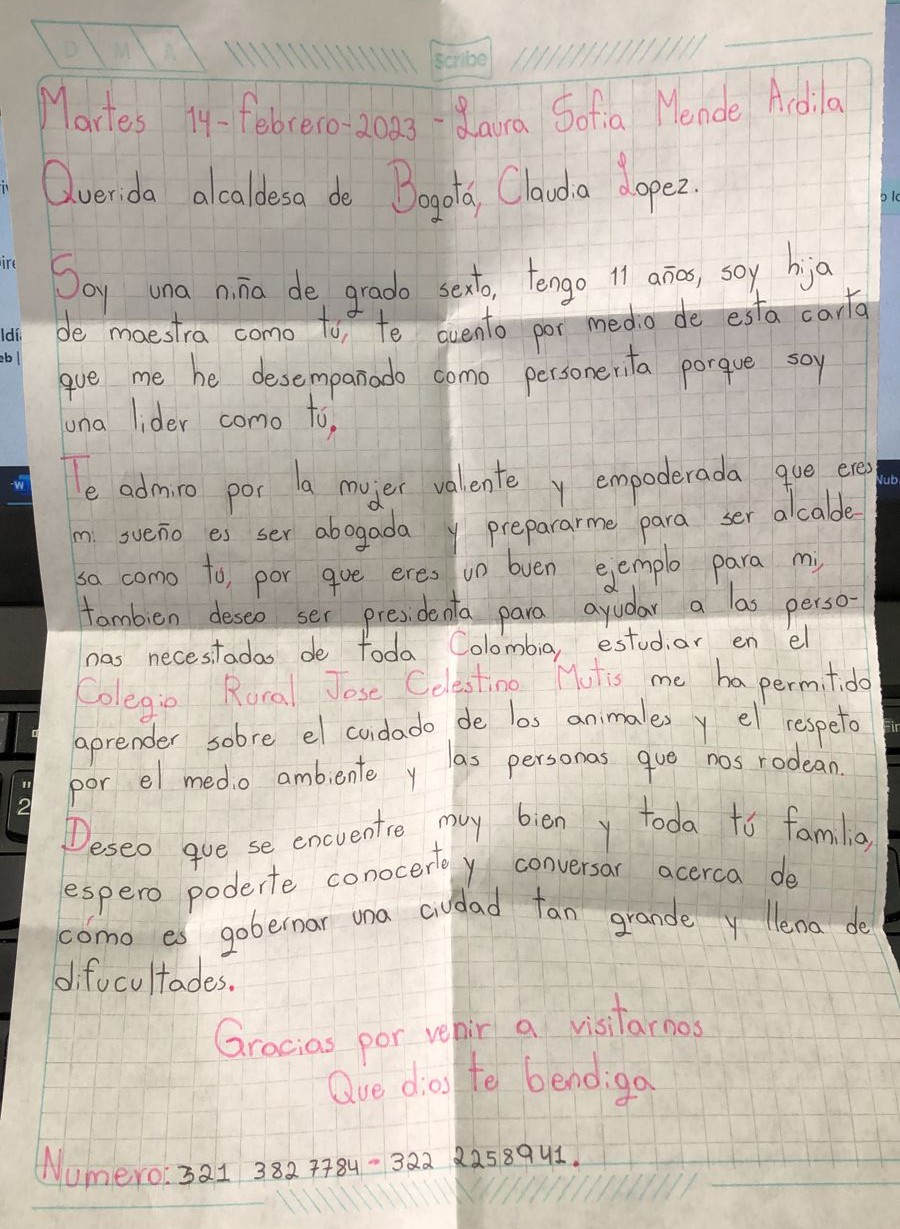 D M A
Scribe
Martes 14-febrero-2023 - Laura Sofia Mende Ardila
Querida alcaldesa de Bogotá, Claudia Lopez.
Soy una niña de grado sexto, tengo 11 años, soy hija
de maestra como tú, te cuento por medio de esta carta
que me he desempañado como personerita porque soy
una lider como tú.
Te admiro por la mujer valiente y empoderada que eres
mi sueño es ser abogada y prepararme para ser alcalde-
sa como tú, por que eres un buen ejemplo para mi,
tambien deseo ser presidenta para ayudar a las perso-
nas necesitadas de toda Colombia, estudiar en el
Colegio Rural Jose Celestino Mutis me ha permitido
aprender sobre el cuidado de los animales y el respeto
por el medio ambiente y las personas que nos rodean.
Deseo que se encuentre muy bien y toda tú familia,
espero poderte conocerte y conversar acerca de
cómo es gobernar una ciudad tan grande y llena de
difucultades.
Gracias por venir a visitarnos
Que dios te bendiga
Numero: 321 382 7784 - 322 2258941.